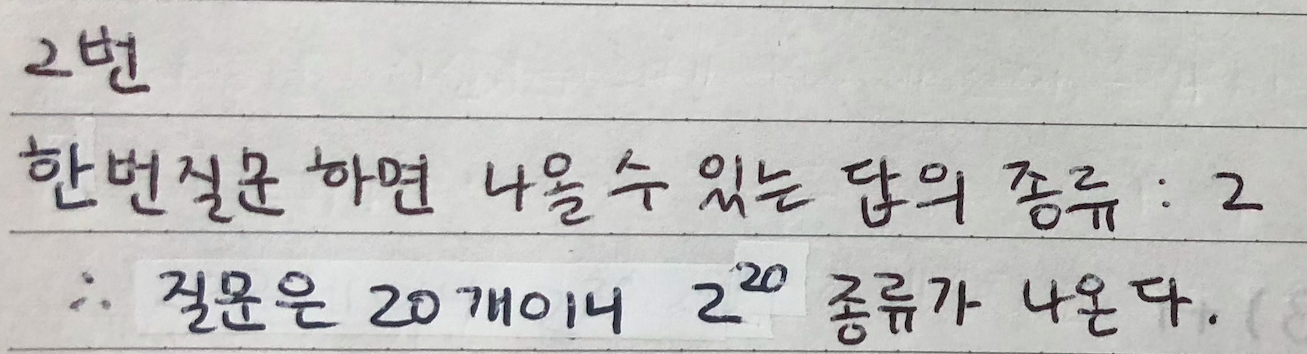 2번
한번질문 하면 나올 수 있는 답의 종류 : 2
∴ 질문은 20개이니 2²⁰ 종류가 나온다.